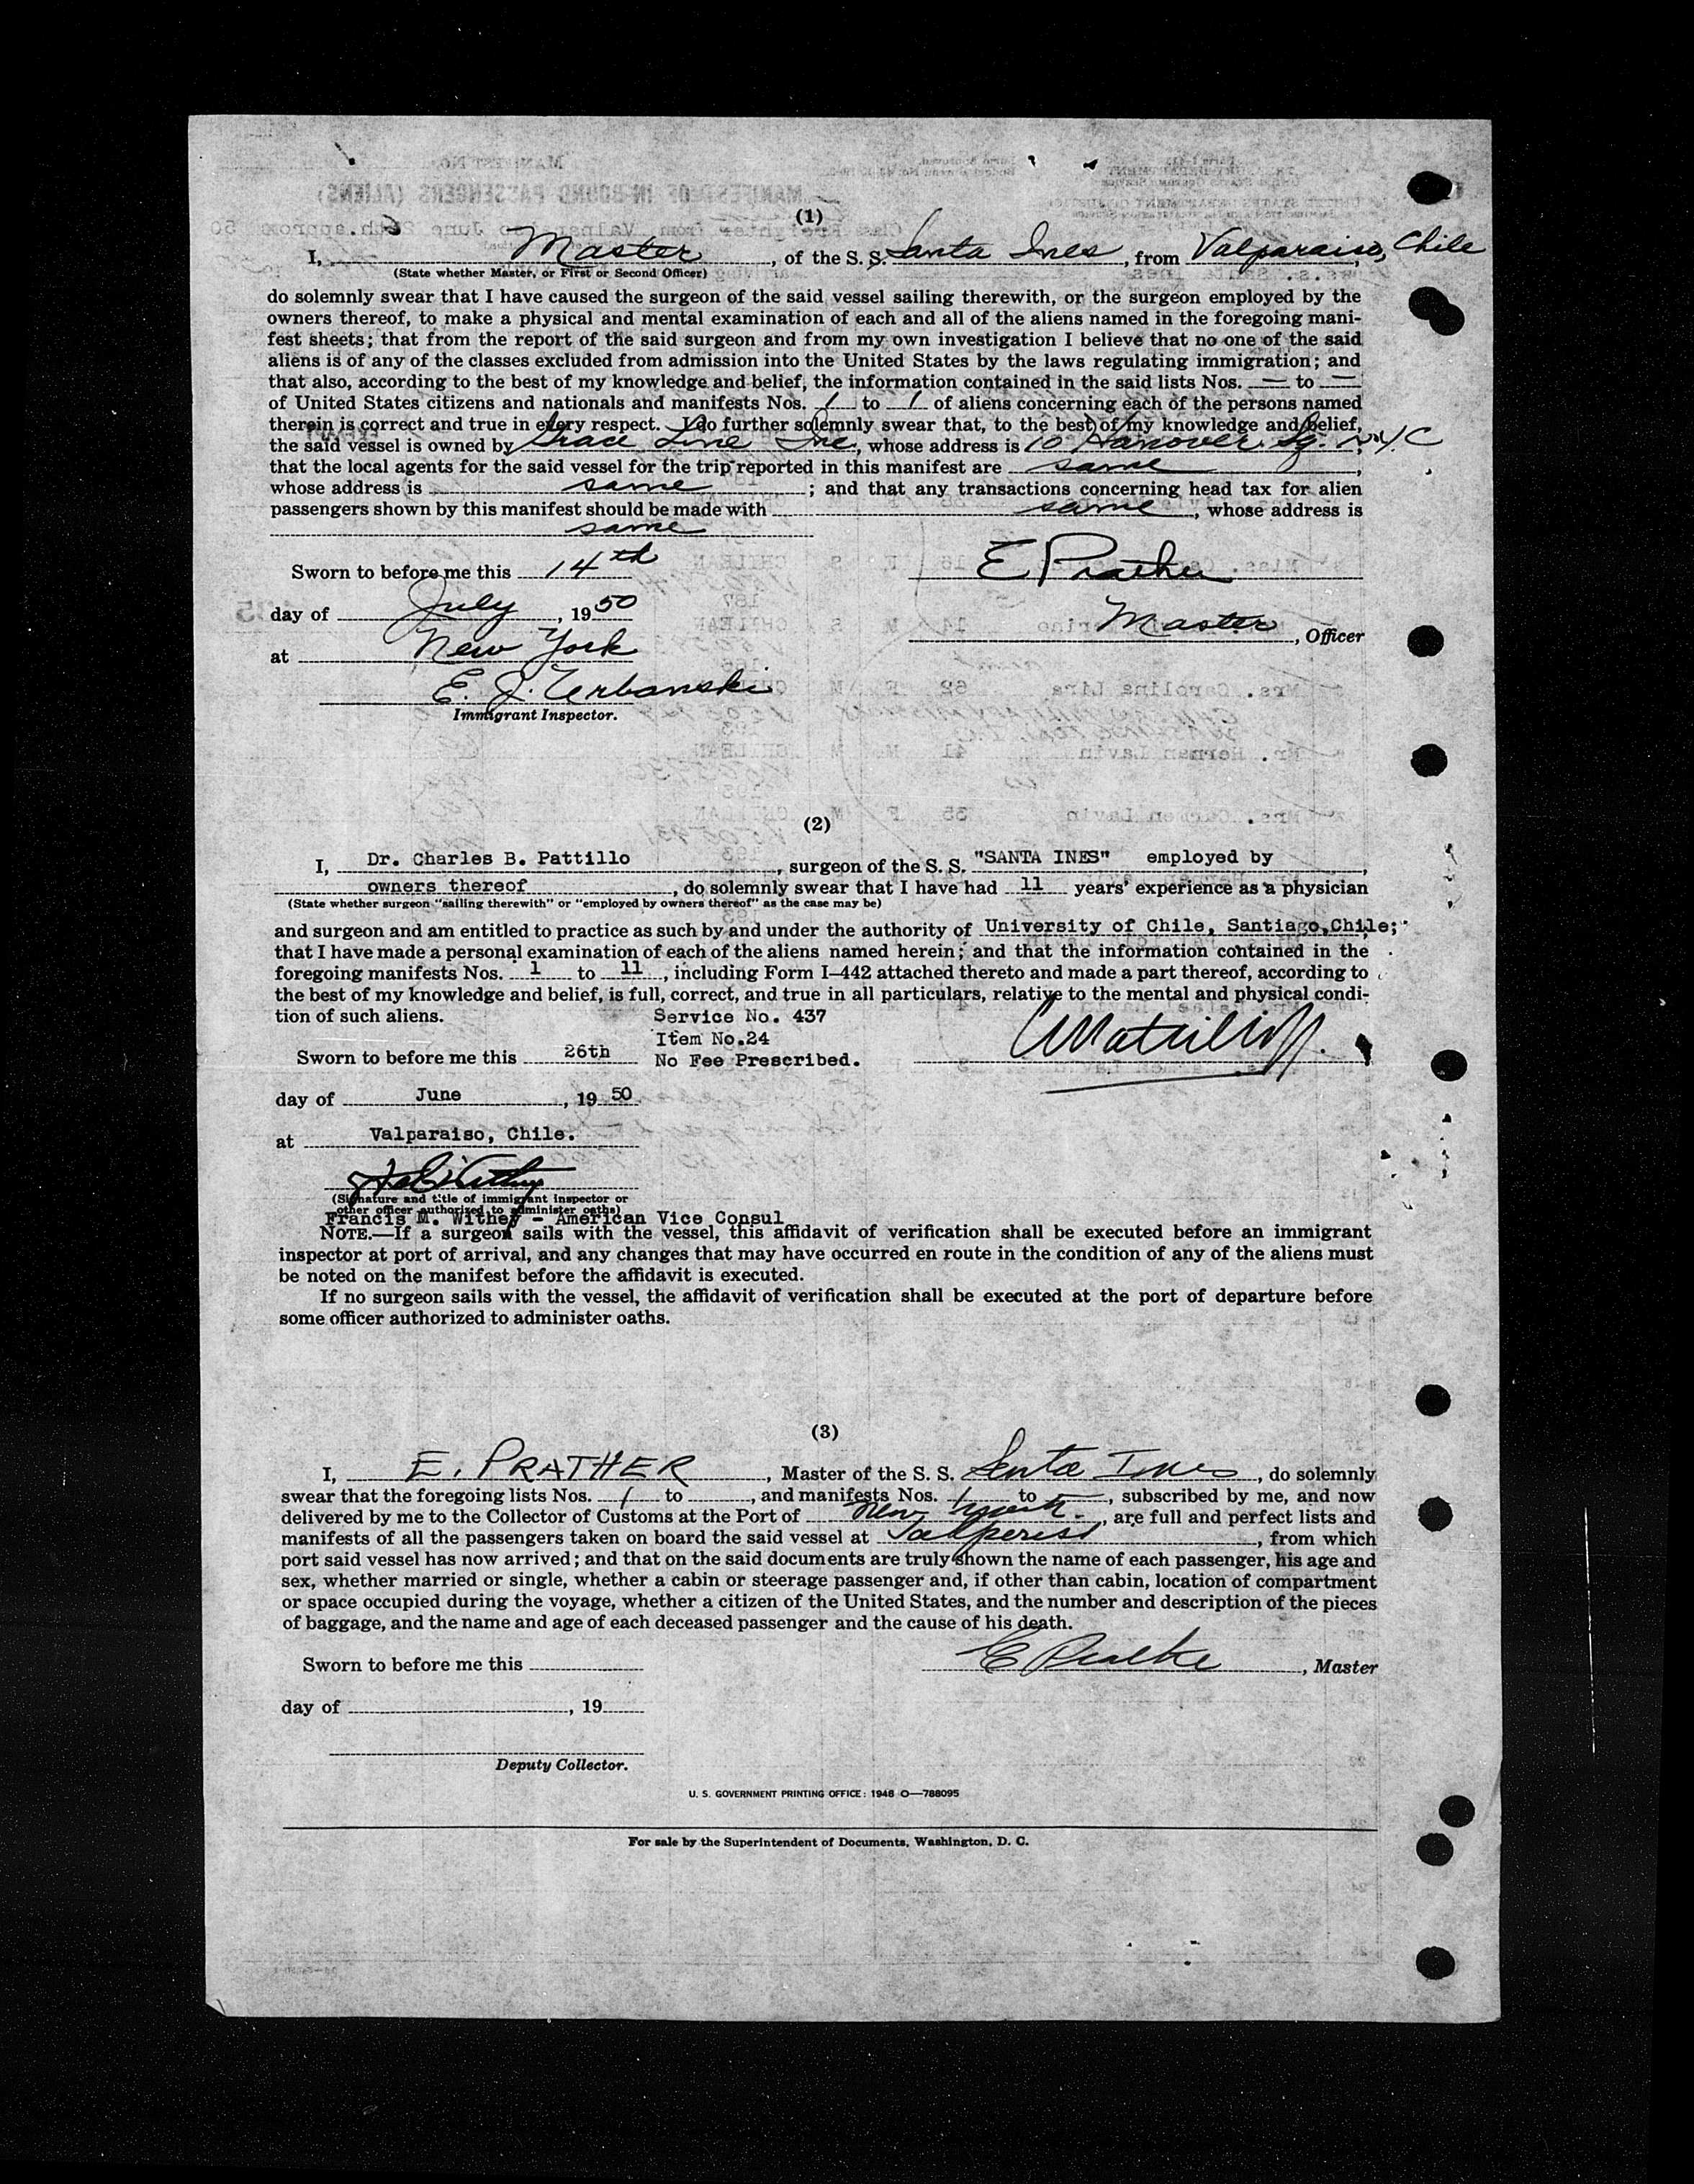 (1)
I, Master, of the S. S. Santa Ines, from Valparaiso, Chile
(State whether Master, or First or Second Officer)
do solemnly swear that I have caused the surgeon of the said vessel sailing therewith, or the surgeon employed by the
owners thereof, to make a physical and mental examination of each and all of the aliens named in the foregoing mani-
fest sheets; that from the report of the said surgeon and from my own investigation I believe that no one of the said
aliens is of any of the classes excluded from admission into the United States by the laws regulating immigration; and
that also, according to the best of my knowledge and belief, the information contained in the said lists Nos. — to —
of United States citizens and nationals and manifests Nos. 1 to 1 of aliens concerning each of the persons named
therein is correct and true in every respect. I do further solemnly swear that, to the best of my knowledge and belief,
the said vessel is owned by Grace Line Inc, whose address is 10 Hanover Sq. N.Y.C
that the local agents for the said vessel for the trip reported in this manifest are same,
whose address is same; and that any transactions concerning head tax for alien
passengers shown by this manifest should be made with same, whose address is
same
Sworn to before me this 14th
E Prather
day of July, 1950
Master, Officer
at New York
E. J. Urbanski
Immigrant Inspector.
(2)
I, Dr. Charles B. Pattillo, surgeon of the S. S. "SANTA INES" employed by,
owners thereof, do solemnly swear that I have had 11 years' experience as a physician
(State whether surgeon "sailing therewith" or "employed by owners thereof" as the case may be)
and surgeon and am entitled to practice as such by and under the authority of University of Chile, Santiago,Chile;
that I have made a personal examination of each of the aliens named herein; and that the information contained in the
foregoing manifests Nos. 1 to 11, including Form I-442 attached thereto and made a part thereof, according to
the best of my knowledge and belief, is full, correct, and true in all particulars, relative to the mental and physical condi-
tion of such aliens. Service No. 437
Item No.24
Sworn to before me this 26th No Fee Prescribed.
day of June, 19 50
at Valparaiso, Chile.
(Signature and title of immigrant inspector or
other officer authorized to administer oaths)
Francis M. Withey - American Vice Consul
NOTE.—If a surgeon sails with the vessel, this affidavit of verification shall be executed before an immigrant
inspector at port of arrival, and any changes that may have occurred en route in the condition of any of the aliens must
be noted on the manifest before the affidavit is executed.
If no surgeon sails with the vessel, the affidavit of verification shall be executed at the port of departure before
some officer authorized to administer oaths.
(3)
I, E. PRATHER, Master of the S. S. Santa Ines, do solemnly
swear that the foregoing lists Nos. 1 to, and manifests Nos. 1 to, subscribed by me, and now
delivered by me to the Collector of Customs at the Port of New York, are full and perfect lists and
manifests of all the passengers taken on board the said vessel at Valperiso, from which
port said vessel has now arrived; and that on the said documents are truly shown the name of each passenger, his age and
sex, whether married or single, whether a cabin or steerage passenger and, if other than cabin, location of compartment
or space occupied during the voyage, whether a citizen of the United States, and the number and description of the pieces
of baggage, and the name and age of each deceased passenger and the cause of his death.
Sworn to before me this
E Prather, Master
day of, 19
Deputy Collector.
U. S. GOVERNMENT PRINTING OFFICE: 1948 O—788095
For sale by the Superintendent of Documents, Washington, D. C.